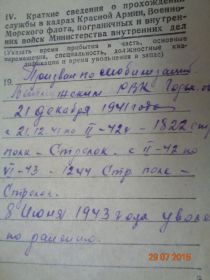 IV. Краткие сведения о прохождении
службы в кадрах Красной Армии, Военно-
Морского флота, пограничных и внутрен-
них войск Министерства внутренних дел
(Указать время прибытия в часть,
перемещения, специальность, должностные ква-
и время увольнения в запас)
19. Призван по мобилизации
РВК
21 декабря 1941 года
с 21.12.41 по II-42г - 1822 ст
полк - Стрелок. с II-42 по
VI-43 - 1244 Стр полк -
Стрелок.
8 Июня 1943 года уволе
по ранению.
29/07/2015